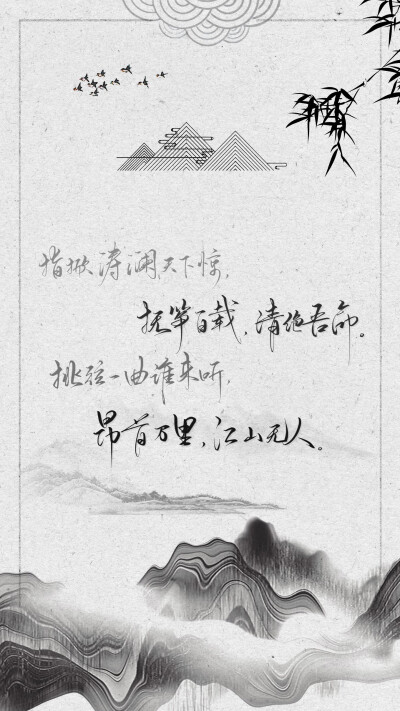 指掀涛澜天下惊,
抚筝百载,清绝吾命。
挑弦一曲谁来听,
昂首万里,江山无人。